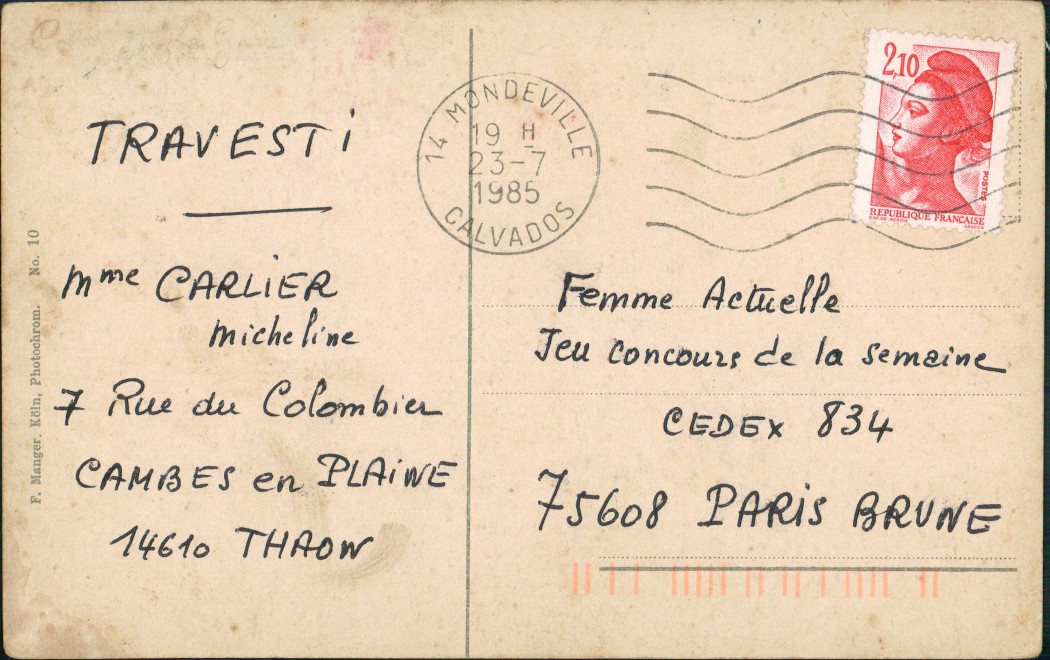 TRAVESTi
Mme CARLIER
Micheline
7 Rue du Colombier
CAMBES en PLAiNE
14610 THAON
F. Manger, Köln, Photochrom. No. 10
14 MONDEVILLE
19 H
23-7
1985
CALVADOS
2,10
POSTES
REPUBLIQUE FRANÇAISE
Femme Actuelle
Jeu concours de la semaine
CEDEX 834
75608 PARiS BRUNE